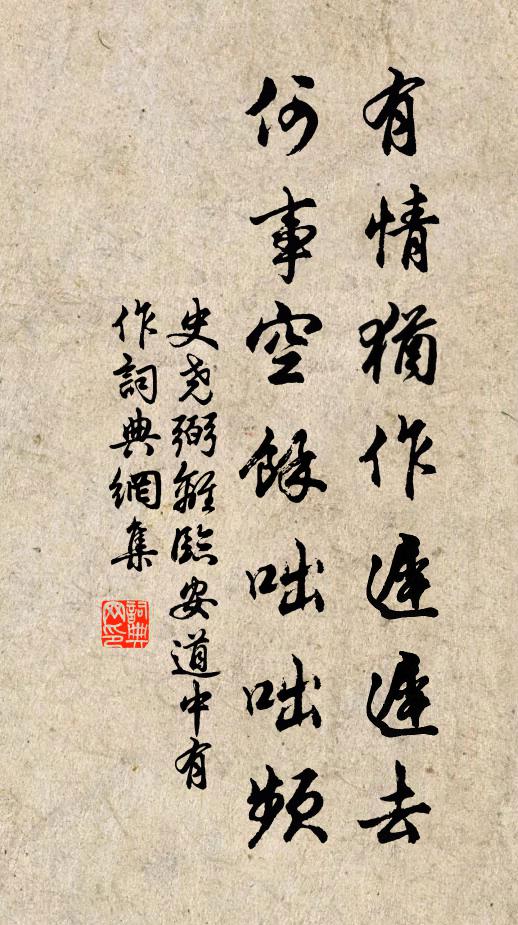 有情猶作遲遲去
何事空餘咄咄頻
史堯弼離臨安道中有
作詞典網集
詞典網印